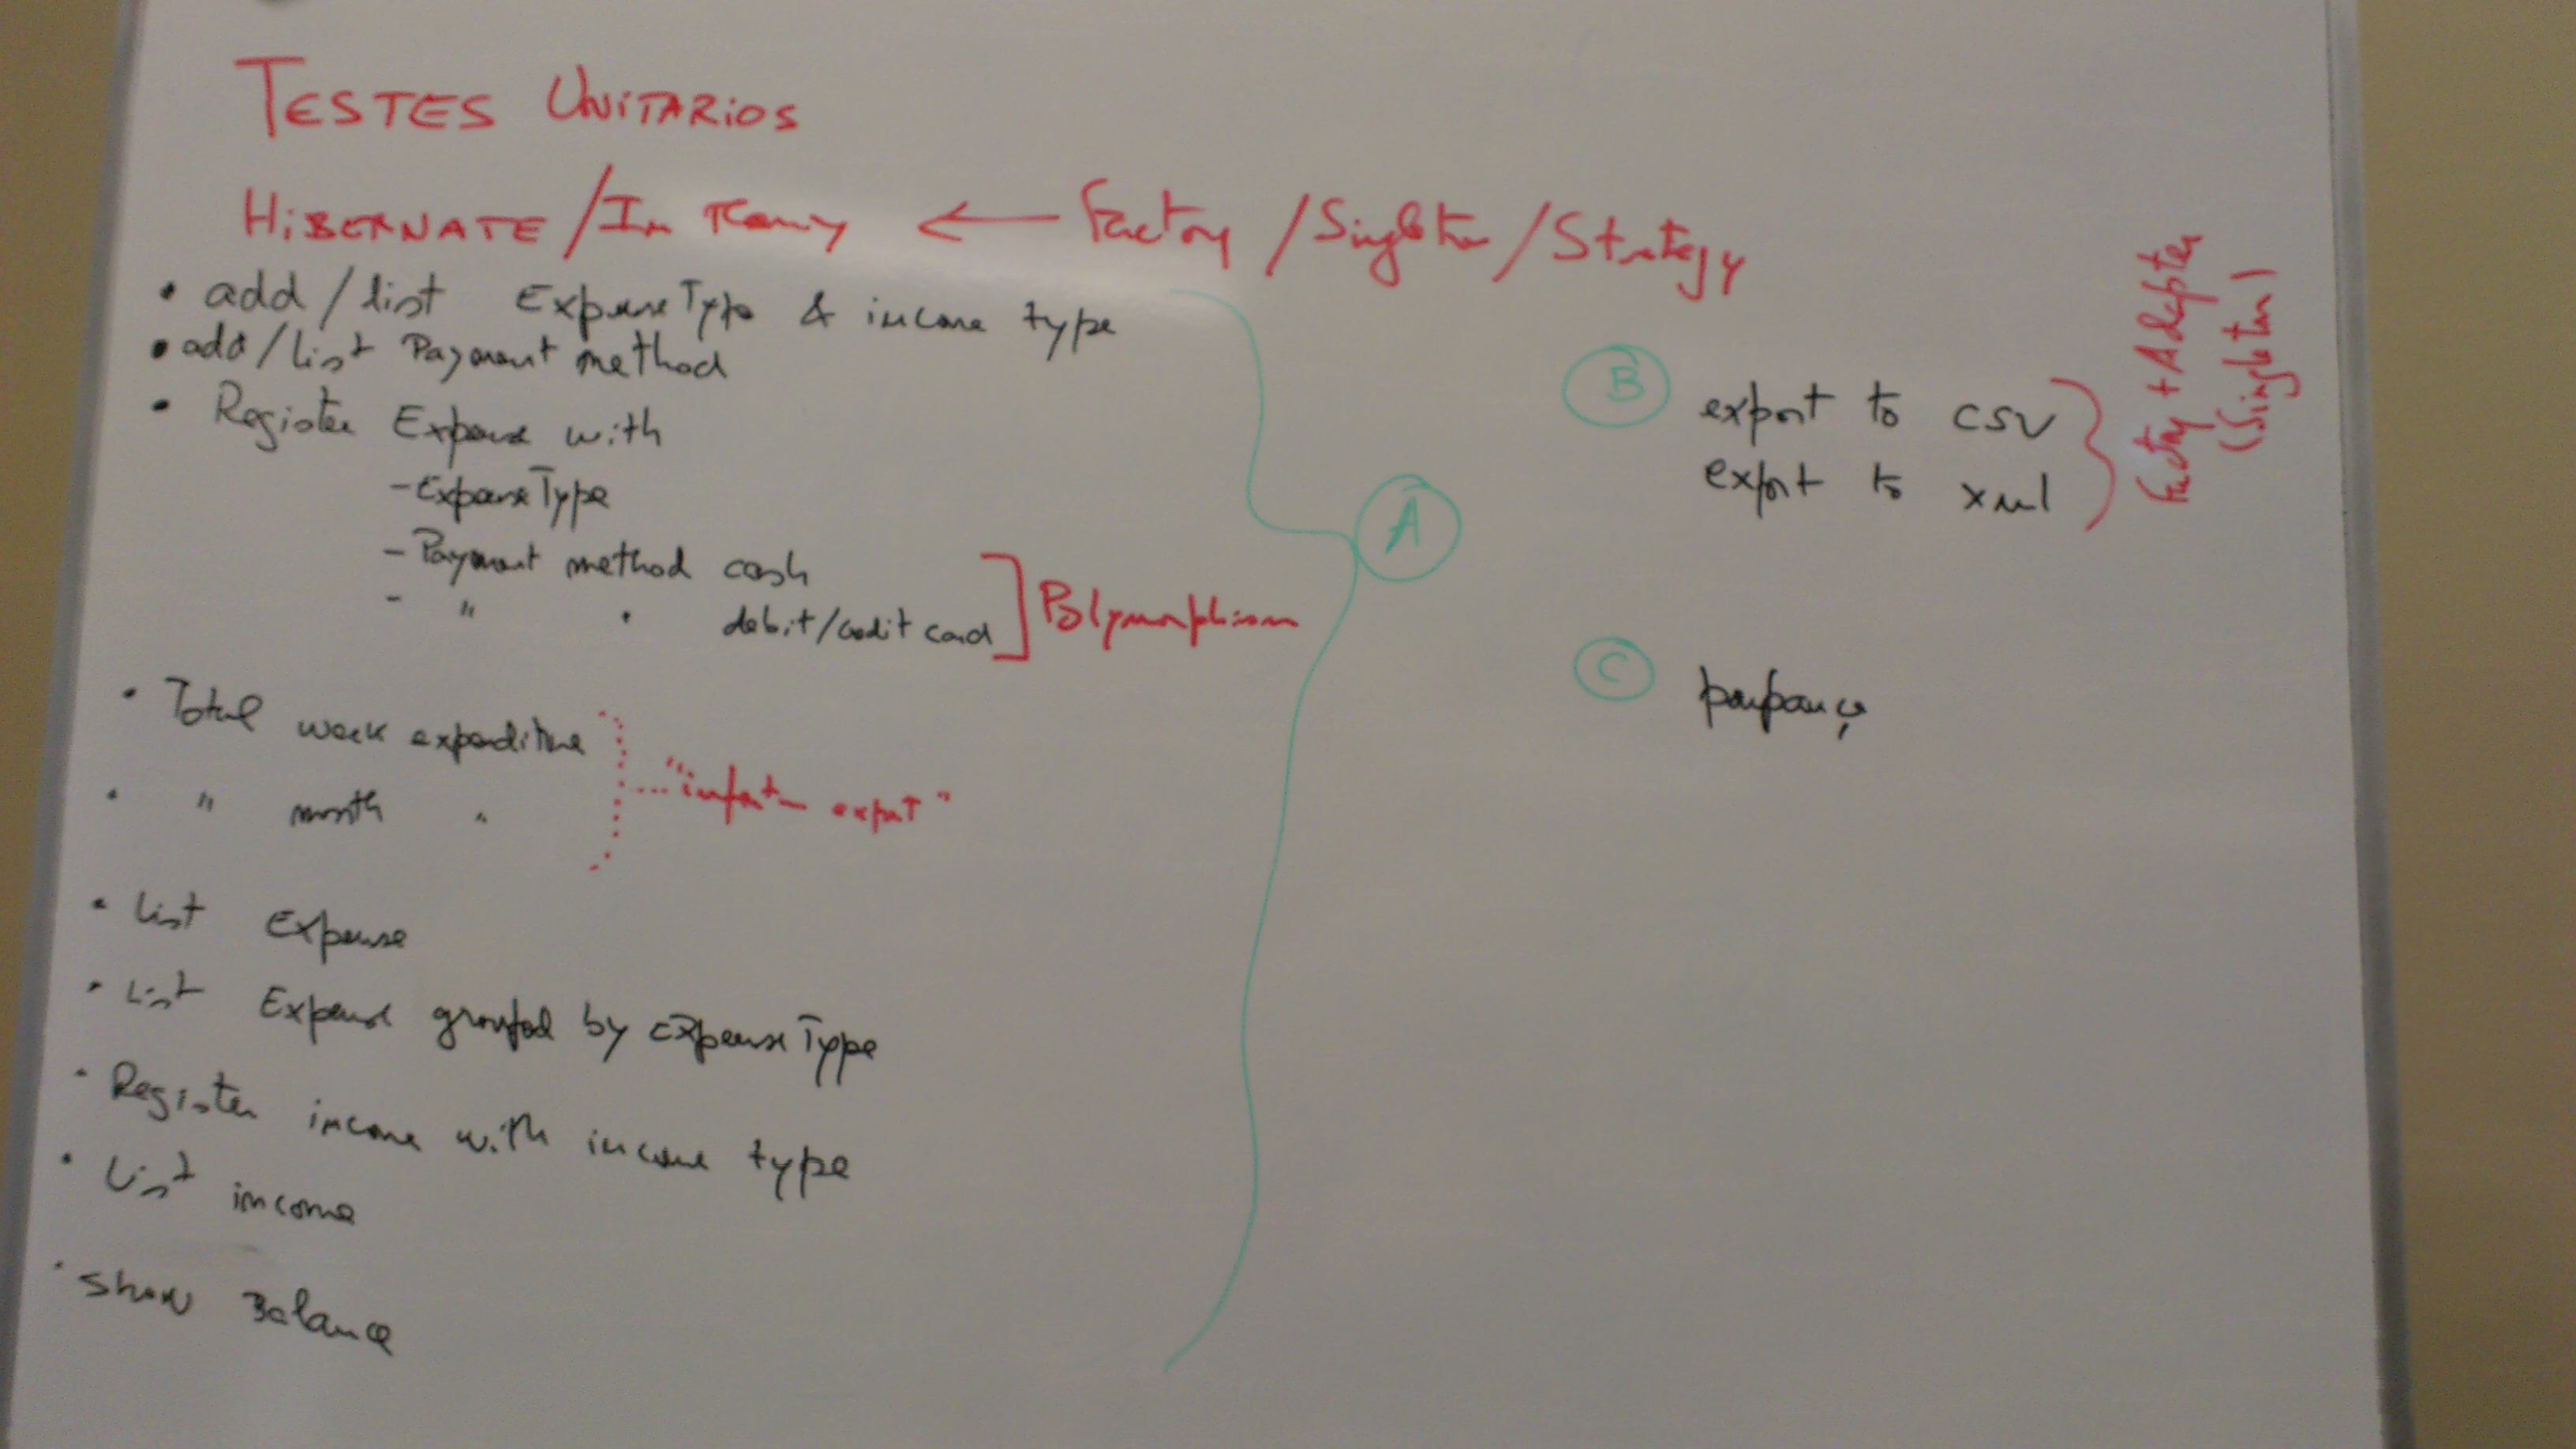 TESTES UNITARIOS
HIBERNATE / In Memory ← Factory / Singleton / Strategy
• add / list ExpenseType & income type
• add / list Payment method
• Register Expense with
- ExpenseType
- Payment method cash
- " " debit/credit card ] Polymorphism
• Total week expenditure
• " month "
"information expert"
• List Expense
• List Expense grouped by ExpenseType
• Register income with income type
• List income
• Show Balance
A
B export to CSV
export to xml
Factory + Adapter
(Singleton)
C